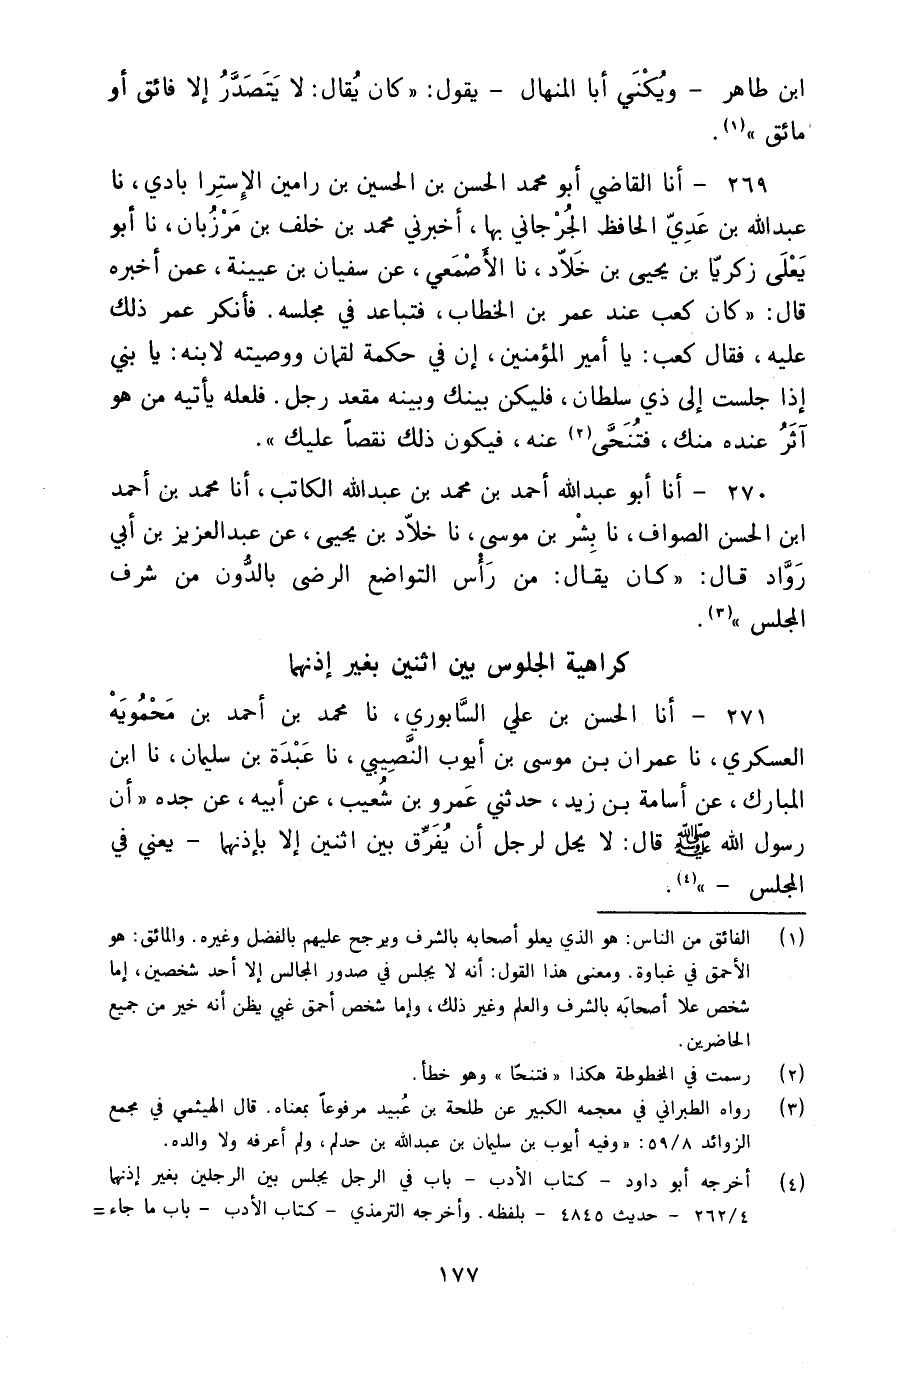 ابن طاهر – ويُكْنَي أبا المنهال – يقول: «كان يُقال: لا يَتَصَدَّرُ إلا فائق أو
مائق»(١).
٢٦٩ – أنا القاضي أبو محمد الحسن بن الحسين بن رامين الإِستِرا بادي، نا
عبدالله بن عَدِيّ الحافظ الجُرْجاني بها، أخبرني محمد بن خلف بن مَرْزُبان، نا أبو
يَعْلَى زكريّا بن يحيى بن خَلّاد، نا الأَصْمَعي، عن سفيان بن عيينة، عمن أخبره
قال: «كان كعب عند عمر بن الخطاب، فتباعد في مجلسه. فأنكر عمر ذلك
عليه، فقال كعب: يا أمير المؤمنين، إن في حكمة لقمان ووصيته لابنه: يا بني
إذا جلست إلى ذي سلطان، فليكن بينك وبينه مقعد رجل. فلعله يأتيه من هو
آثَرُ عنده منك، فتُنَحَّى(٢) عنه، فيكون ذلك نقصاً عليك».
٢٧٠ – أنا أبو عبدالله أحمد بن محمد بن عبدالله الكاتب، أنا محمد بن أحمد
ابن الحسن الصواف، نا بِشْر بن موسى، نا خلّاد بن يحيى، عن عبدالعزيز بن أبي
رَوَّاد قال: «كان يقال: من رَأْس التواضع الرضى بالدُّون من شرف
المجلس»(٣).
كراهية الجلوس بين اثنين بغير إذنهما
٢٧١ – أنا الحسن بن علي السَّابوري، نا محمد بن أحمد بن مَحْمُويَهْ
العسكري، نا عمران بن موسى بن أيوب النَّصِيبي، نا عَبْدَة بن سليمان، نا ابن
المبارك، عن أسامة بن زيد، حدثني عَمرو بن شُعيب، عن أبيه، عن جده «أن
رسول الله ﷺ قال: لا يحل لرجل أن يُفَرِّق بين اثنين إلا بإذنهما – يعني في
المجلس –»(٤).
(١) الفائق من الناس: هو الذي يعلو أصحابه بالشرف ويرجح عليهم بالفضل وغيره. والمائق: هو
الأحمق في غباوة. ومعنى هذا القول: أنه لا يجلس في صدور المجالس إلا أحد شخصين، إما
شخص علا أصحابَه بالشرف والعلم وغير ذلك، وإما شخص أحمق غبي يظن أنه خير من جميع
الحاضرين.
(٢) رسمت في المخطوطة هكذا «فتنحّا» وهو خطأ.
(٣) رواه الطبراني في معجمه الكبير عن طلحة بن عُبيد مرفوعاً بمعناه. قال الهيثمي في مجمع
الزوائد ٥٩/٨: «وفيه أيوب بن سليمان بن عبدالله بن حدلم، ولم أعرفه ولا والده.
(٤) أخرجه أبو داود – كتاب الأدب – باب في الرجل يجلس بين الرجلين بغير إذنهما
٢٦٢/٤ – حديث ٤٨٤٥ – بلفظه. وأخرجه الترمذي – كتاب الأدب – باب ما جاء =
١٧٧